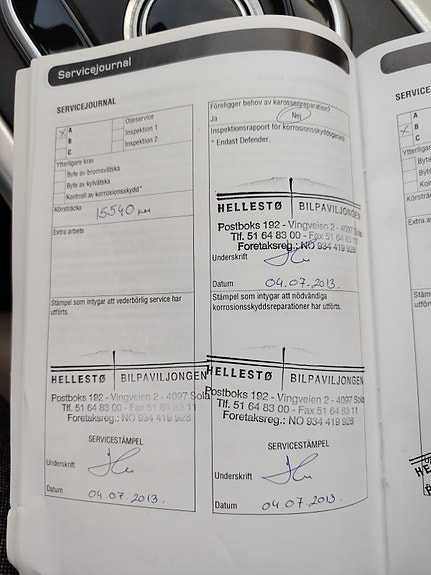 Servicejournal
SERVICEJOURNAL
A
B
C
Oljeservice
Inspektion 1
Inspektion 2
Ytterligare krav
Byte av bromsvätska
Byte av kylvätska
Kontroll av korrosionsskydd*
Körsträcka
15540 km
Extra arbete
Stämpel som intygar att vederbörlig service har
utförts.
HELLESTØ BILPAVILJONGEN
Postboks 192 - Vingveien 2 - 4097 Sola
Tlf. 51 64 83 00 - Fax 51 64 83 11
Foretaksreg.: NO 934 419 928
SERVICESTÄMPEL
Underskrift
Datum
04.07.2013.
Föreligger behov av karosserireparation?
Ja
Nej
Inspektionsrapport för korrosionsskyddsgaranti
* Endast Defender.
HELLESTØ BILPAVILJONGEN
Postboks 192 - Vingveien 2 - 4097
Tlf. 51 64 83 00 - Fax 51 64 83
Foretaksreg.: NO 934 419 928
Underskrift
Datum
04.07.2013.
Stämpel som intygar att nödvändiga
korrosionsskyddsreparationer har utförts.
HELLESTØ BILPAVILJONGEN
Postboks 192 - Vingveien 2 - 4097 Sola
Tlf. 51 64 83 00 - Fax 51 64 83 11
Foretaksreg.: NO 934 419 928
SERVICESTÄMPEL
Underskrift
Datum
04.07.2013.
SERVICE
A
B
C
Ytterligare
Körsträcka
Extra arbete
Stämpel
utförts.